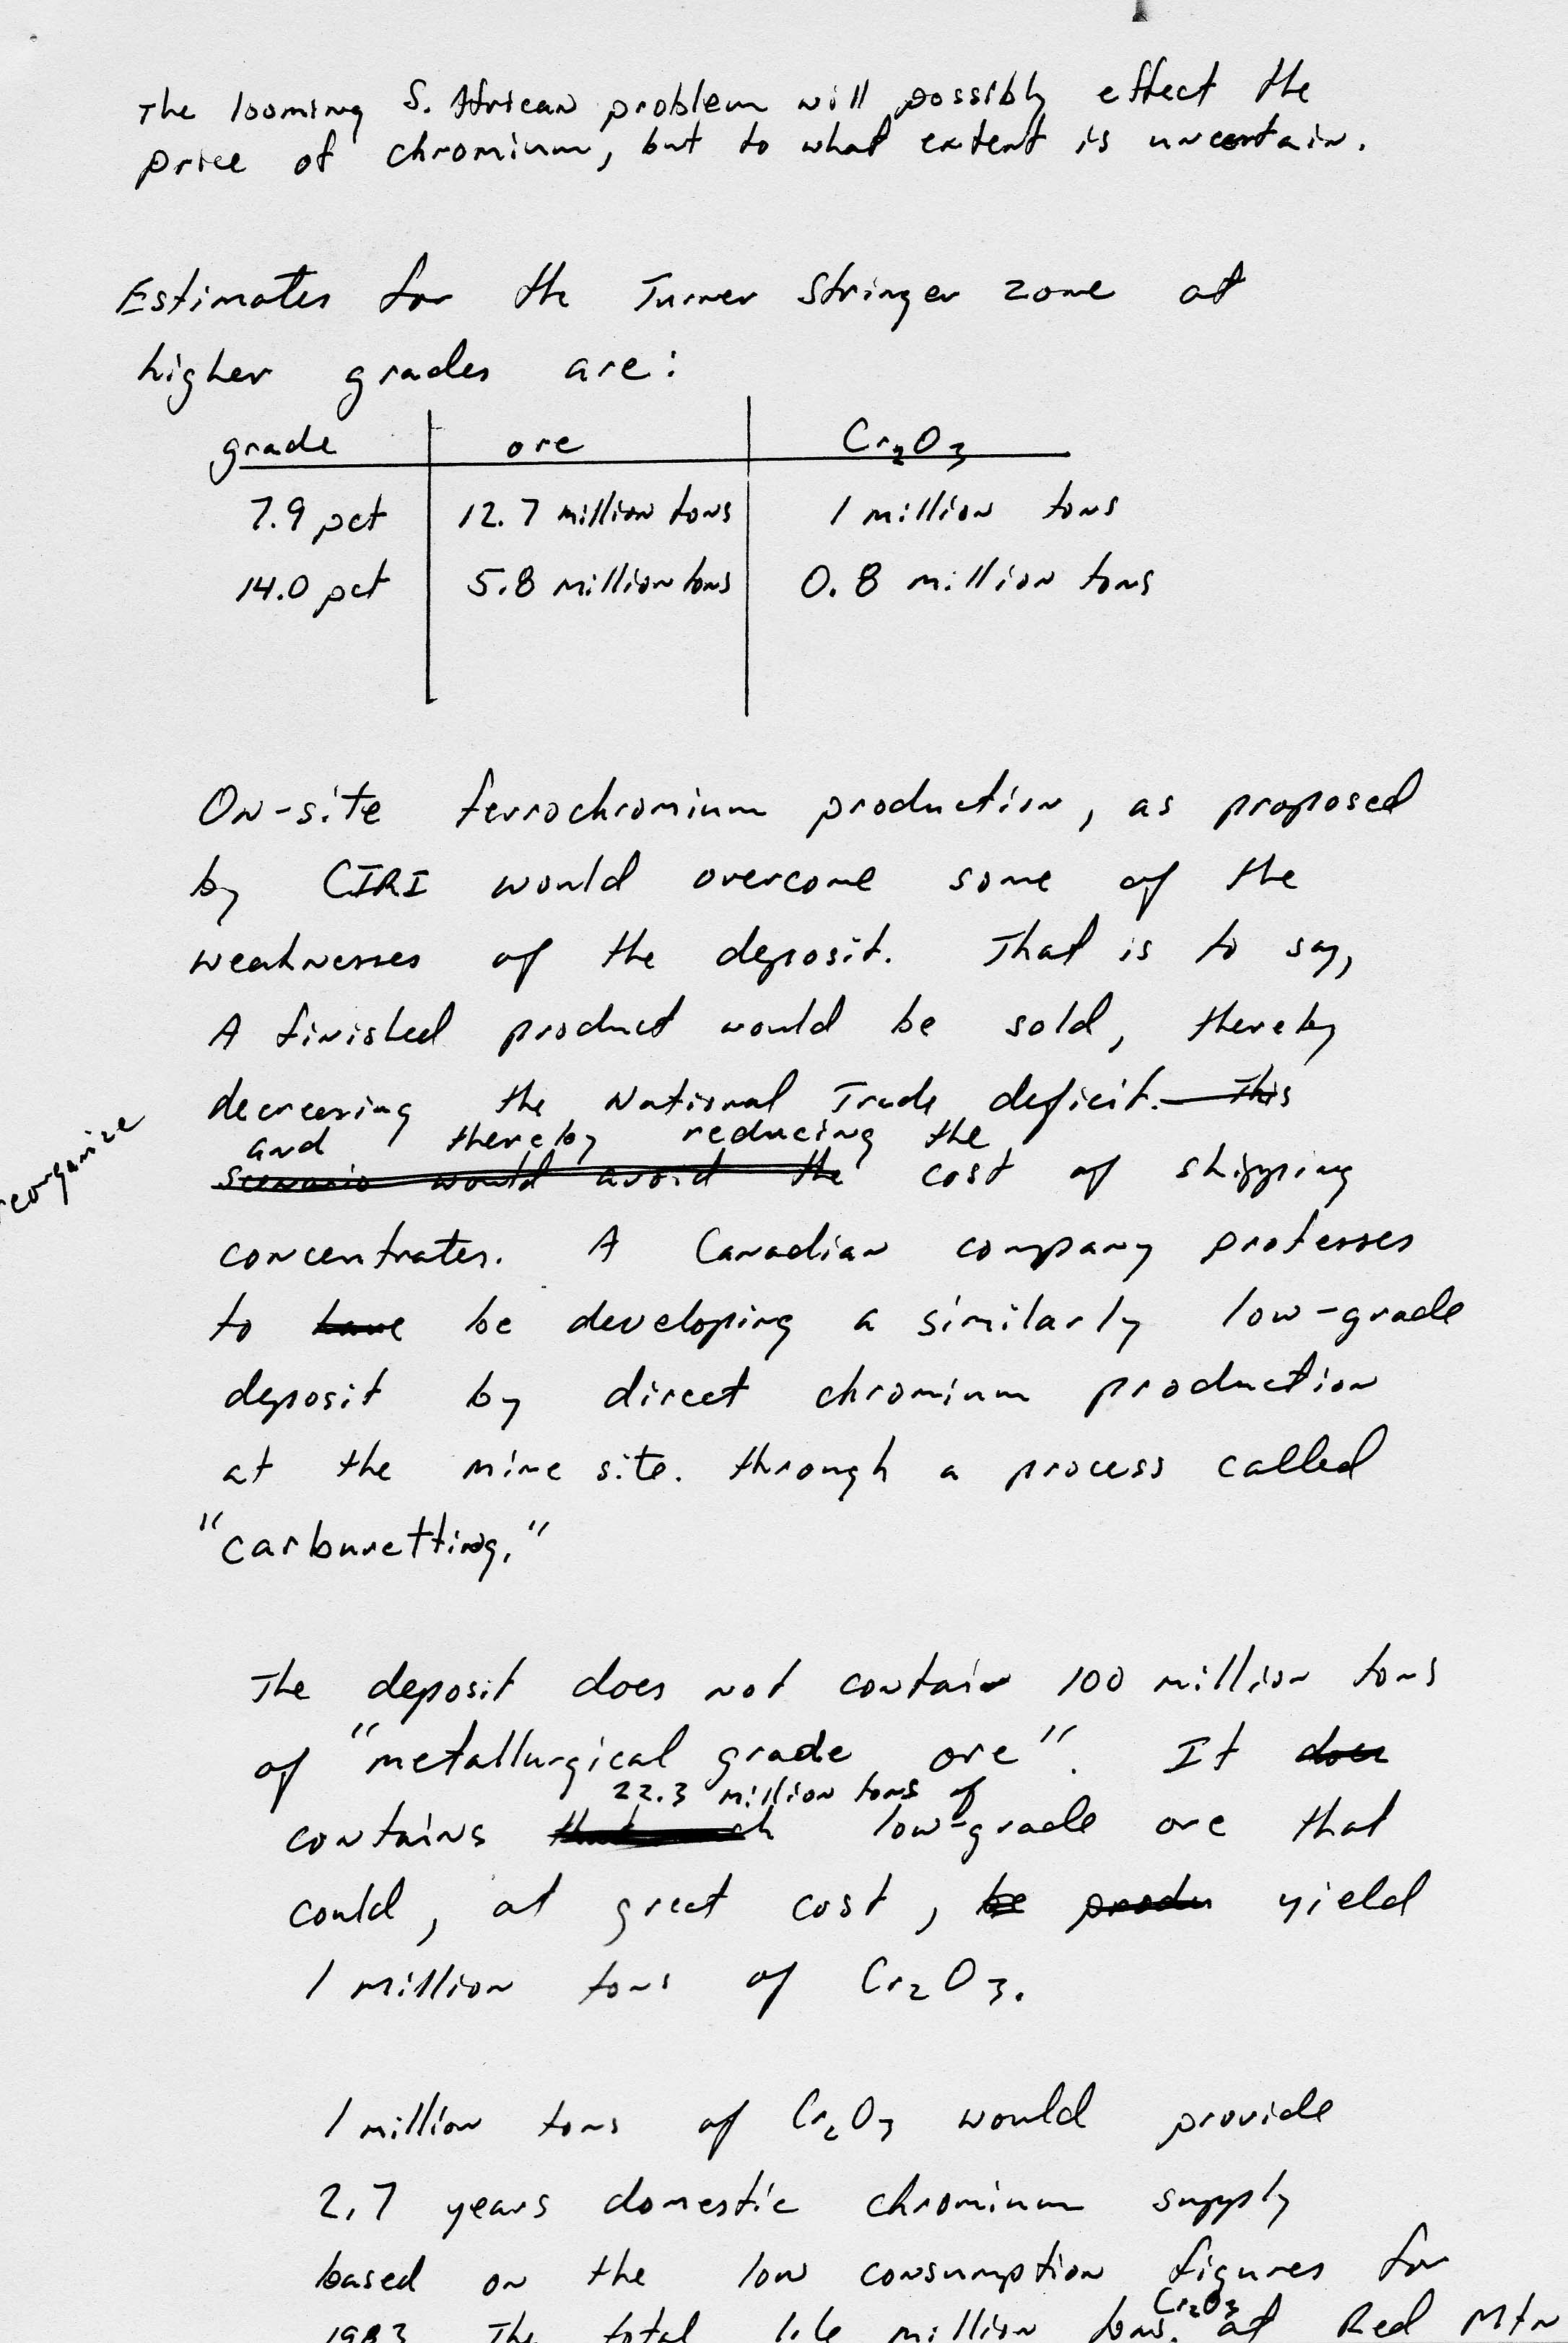 The looming S. African problem will possibly effect the
price of chromium, but to what extent is uncertain.
Estimates for the Turner Stringer zone at
higher grades are:
grade ore Cr₂O₃
7.9 pct 12.7 million tons 1 million tons
14.0 pct 5.8 million tons 0.8 million tons
On-site ferrochromium production, as proposed
by CIRI would overcome some of the
weaknesses of the deposit. That is to say,
A finished product would be sold, thereby
decreasing the National Trade deficit. This
and thereby reducing the
reorganize
scenario would avoid the cost of shipping
concentrates. A Canadian company professes
to have be developing a similarly low-grade
deposit by direct chromium production
at the mine site. through a process called
"carburetting."
The deposit does not contain 100 million tons
of "metallurgical grade ore". It does
22.3 million tons of
contains low-grade ore that
could, at great cost, be produ yield
1 million tons of Cr₂O₃.
1 million tons of Cr₂O₃ would provide
2.7 years domestic chrominum supply
based on the low consumption figures for
Cr₂O₃
1983. The total 1.6 million tons at Red Mtn